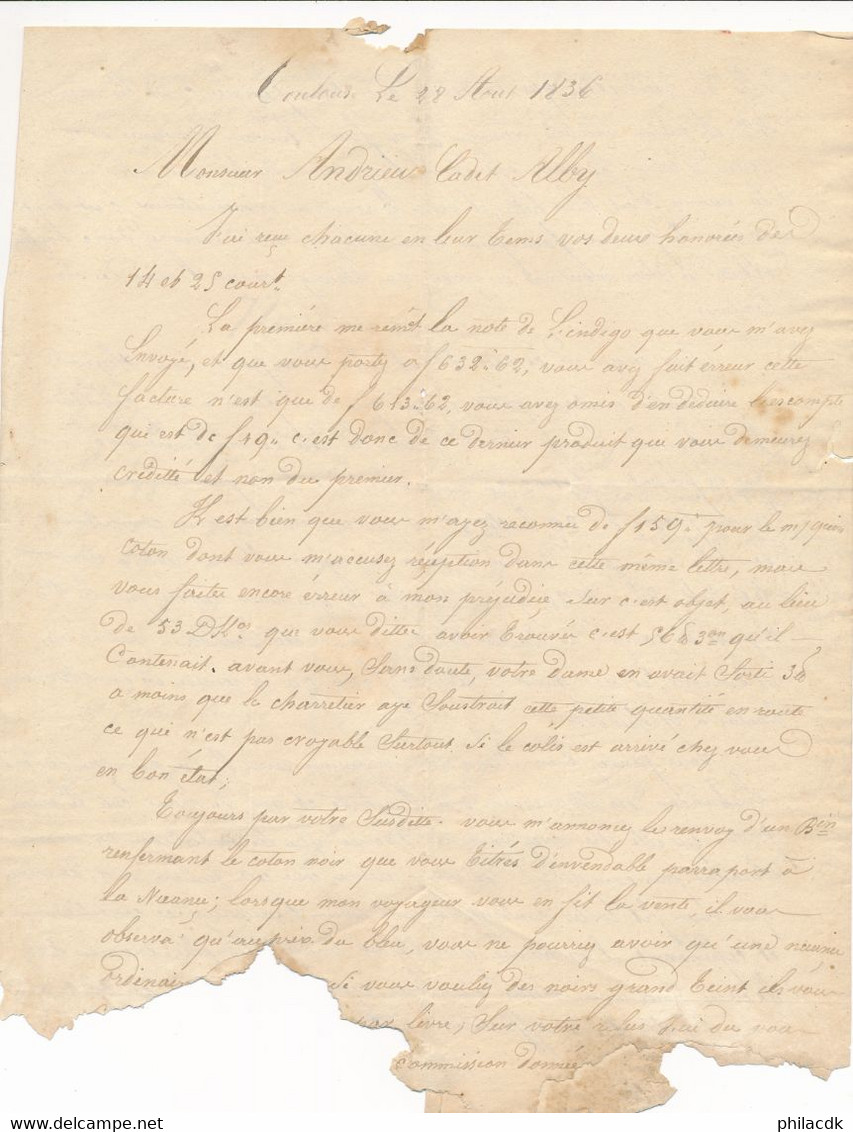 Toulouse Le 28 Aout 1836
Monsieur Andrieu Cadet Alby
J'ai reçu chacune en leur tems vos deux honorées des
14 et 25 court.
La première me remt la note de L'indigo que vous m'avez
Envoyé, et que vous portez a f 632.62, vous avez fait érreur cette
facture n'est que de f 613.62, vous avez omis d'en déduire l'escompte
qui est de f 19 c'est donc de ce dernier produit que vous demeurez
creditté et non du premier.
Il est bien que vous m'ayez reconnu de f 159 pour le
coton dont vous m'accusez réception dans cette même lettre, mais
vous faites encore érreur à mon préjudice sur c'est objet, au lieu
de 53 que vous ditte avoir trouvés c'est 56 qu'il
Contenait. avant vous, Sans doute, votre dame en avait Sorti 3
a moins que le charretier aye Soustrait cette petite quantité en route
ce qui n'est pas croyable Surtout Si le colis est arrivé chez vous
en bon état;
Toujours par votre Susditte. vous m'annoncez le renvoy d'un
renfermant le coton noir que vous titrés d'invendable parraport à
la Nuance; lorsque mon voyageur vous en fit la vente, il vous
observa qu'au prix du bleu, vous ne pourriez avoir qu'une nuance
ordinai Si vous vouliez des noirs grand teint ils vous
par livre, Sur votre refus j'ai du vous
commission donnée
philacdk